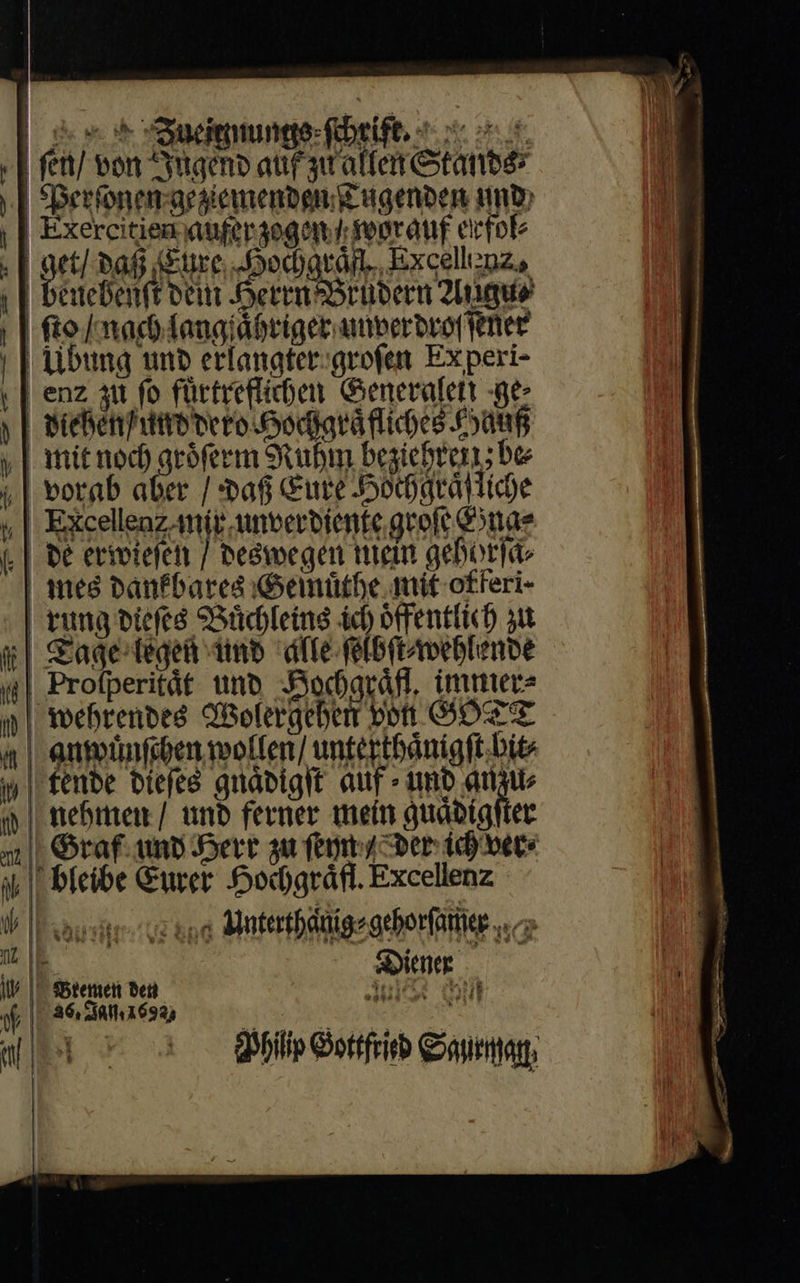 Zueignungs-ſchrift.
ſen/ von Jugend auf zu allen Stands-
Perſonen geziemenden Tugenden und
Exercitien auferzogen / worauf erfol-
get/ daß Eure Hochgräfl. Excellenz,
benebenſt dem Herrn Brüdern Augu-
ſto / nach langjähriger unverdroſſener
Übung und erlangter groſen Experi-
enz zu ſo fürtreflichen Generalen ge-
diehen/ und dero Hochgräfliches Hauß
mit noch gröſerm Ruhm beziehren; be-
vorab aber / daß Eure Hochgräfliche
Excellenz mir unverdiente groſe Gna-
de erwieſen / deswegen mein gehorſa-
mes dankbares Gemüthe mit offeri-
rung dieſes Büchleins ich öffentlich zu
Tage legen und alle ſelbſt-wehlende
Proſperität und Hochgräfl. immer-
wehrendes Wolergehen von GOTT
anwünſchen wollen/ unterthänigſt bit-
tende dieſes gnädigſt auf- und anzu-
nehmen / und ferner mein gnädigſter
Graf und Herr zu ſeyn / der ich ver-
bleibe Eurer Hochgräfl. Excellenz
Unterthänig-gehorſamer
Diener
Bremen den
26. Jan. 1692.
Philip Gottfried Saurman.